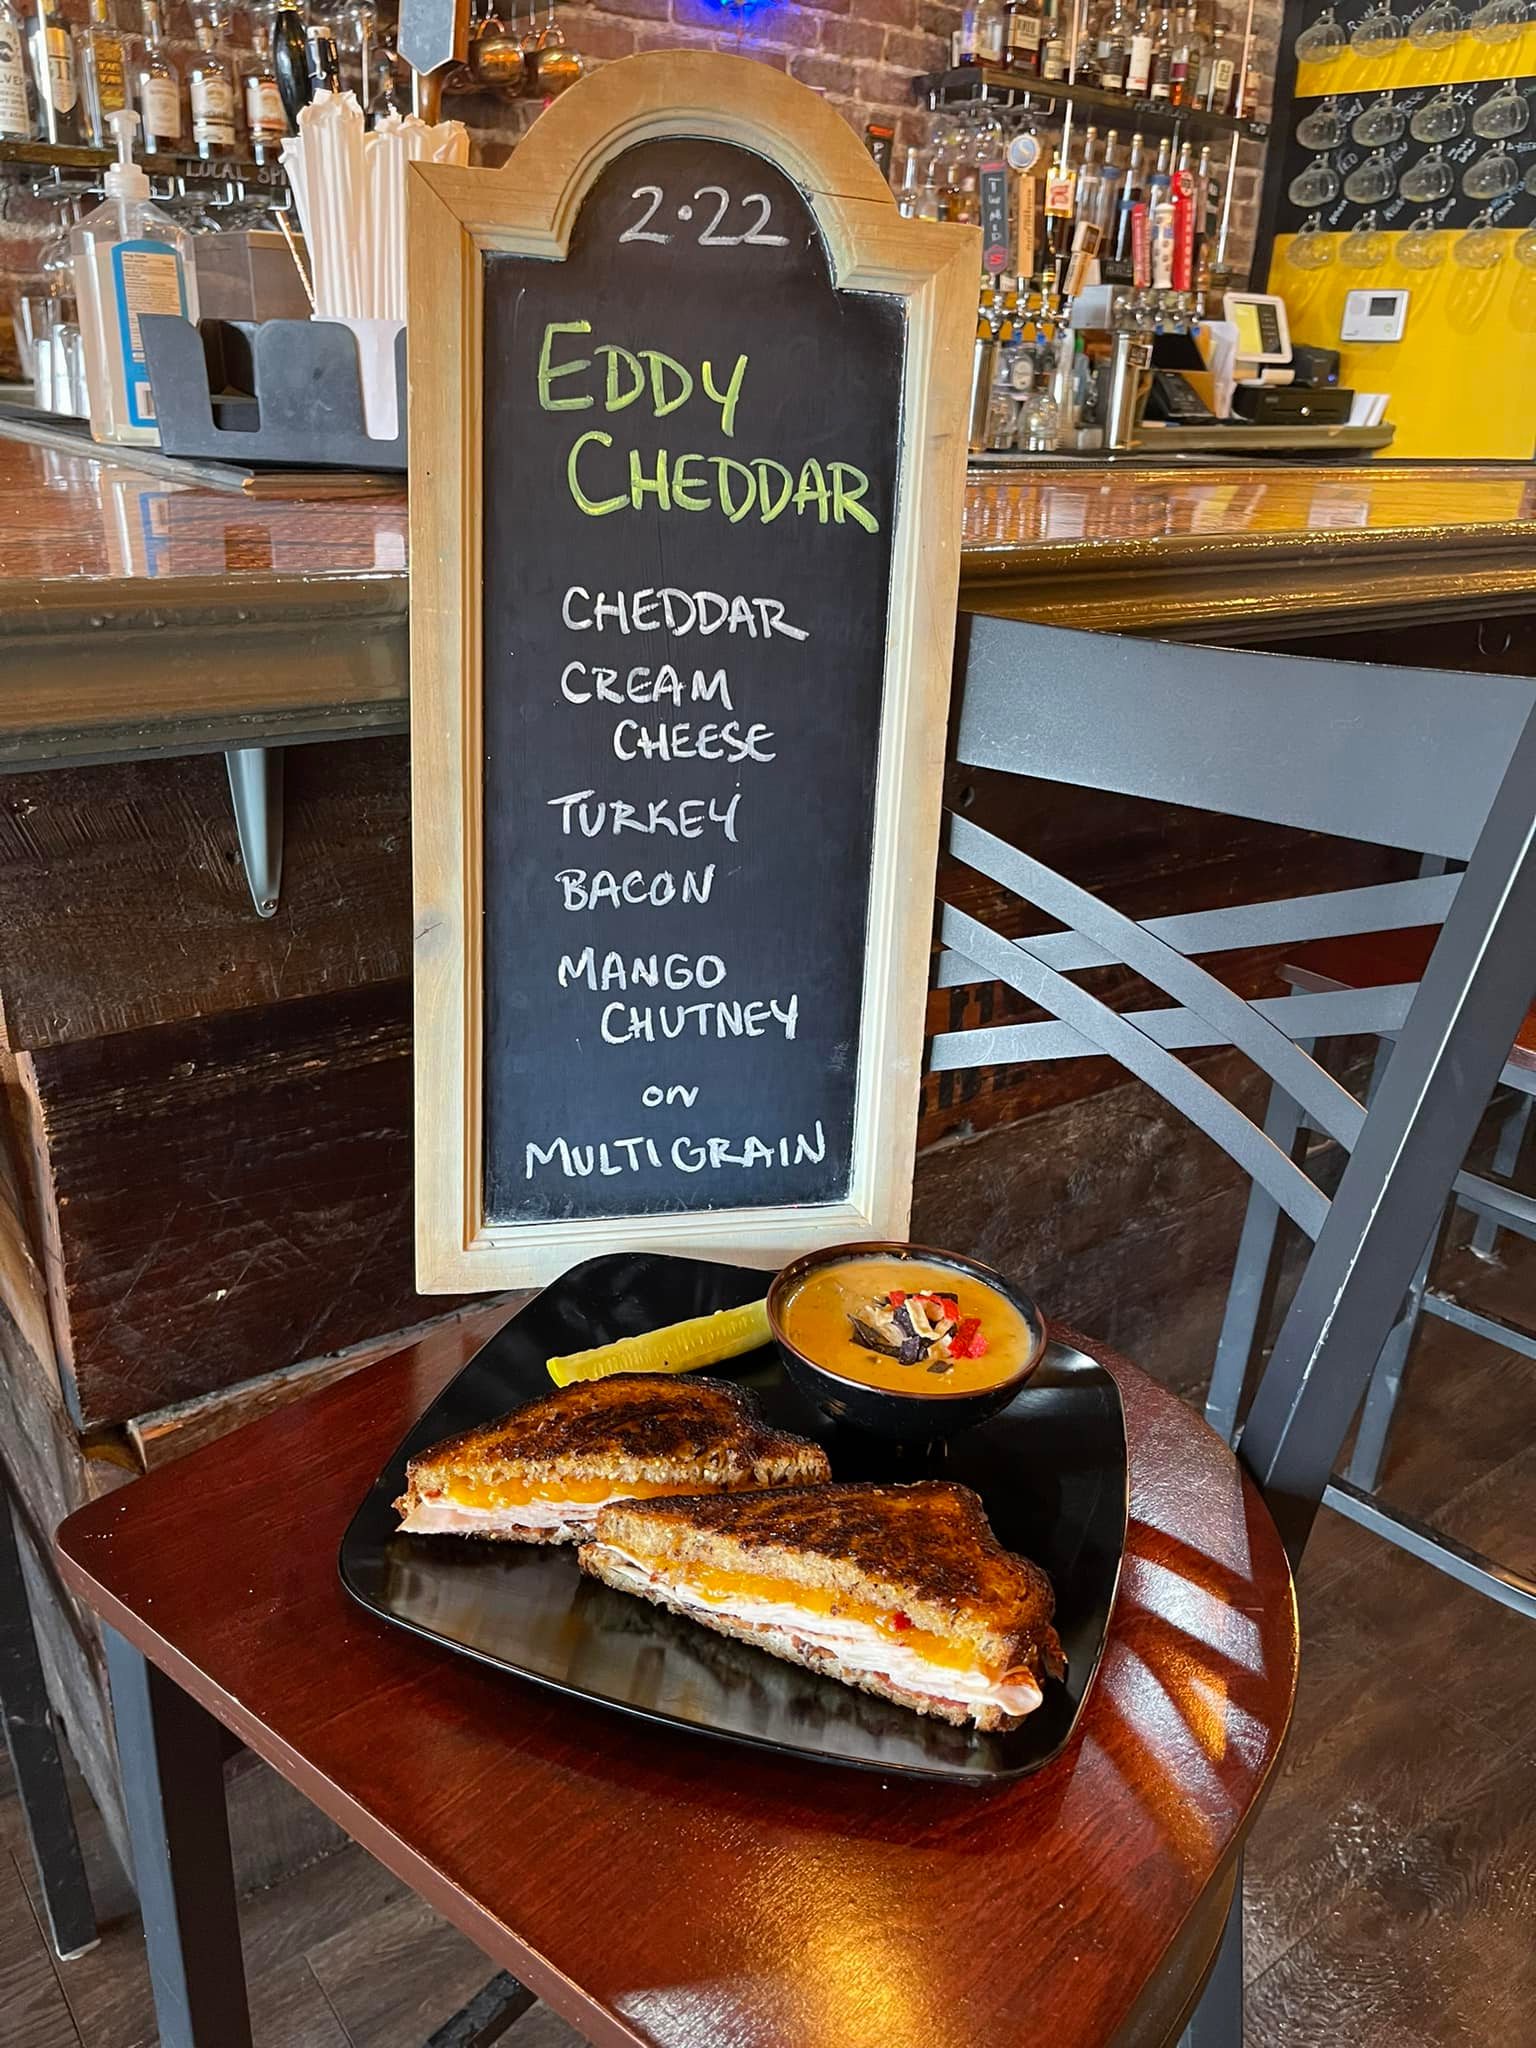 2·22
EDDY
CHEDDAR
CHEDDAR
CREAM
CHEESE
TURKEY
BACON
MANGO
CHUTNEY
on
MULTIGRAIN
LOCAL